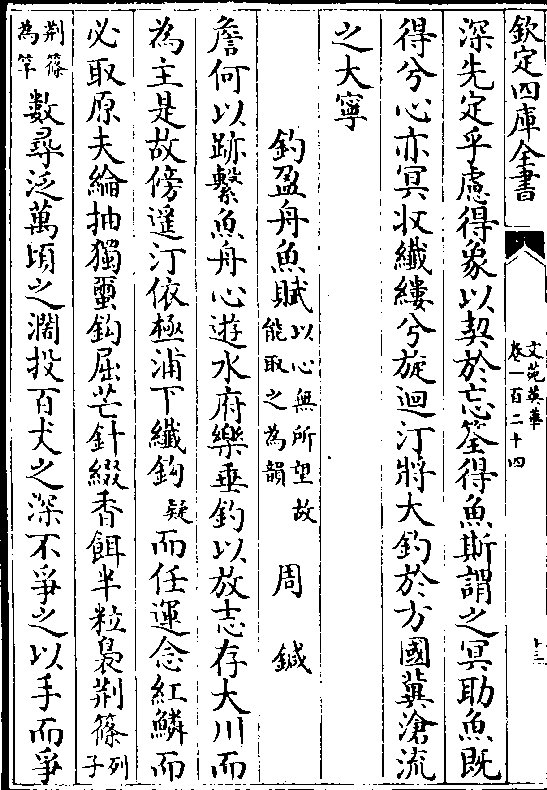 欽定四庫全書
文苑英華
卷一百二十四
十三
深先定乎慮得象以契於忘筌得魚斯謂之冥助魚既
得兮心亦冥收纖縷兮旋迴汀將大釣於方國冀滄流
之大寧
釣盈舟魚賦以心無所望故能取之為韻 周鍼
詹何以跡繫魚舟心遊水府樂垂釣以放志存大川而
為主是故傍遥汀依極浦下纖鈎疑而任運念紅鱗而
必取原夫綸抽獨蠒鈎屈芒針綴香餌半粒裊荆篠列子
荆篠為竿數尋泛萬頃之濶投百丈之深不爭之以手而爭